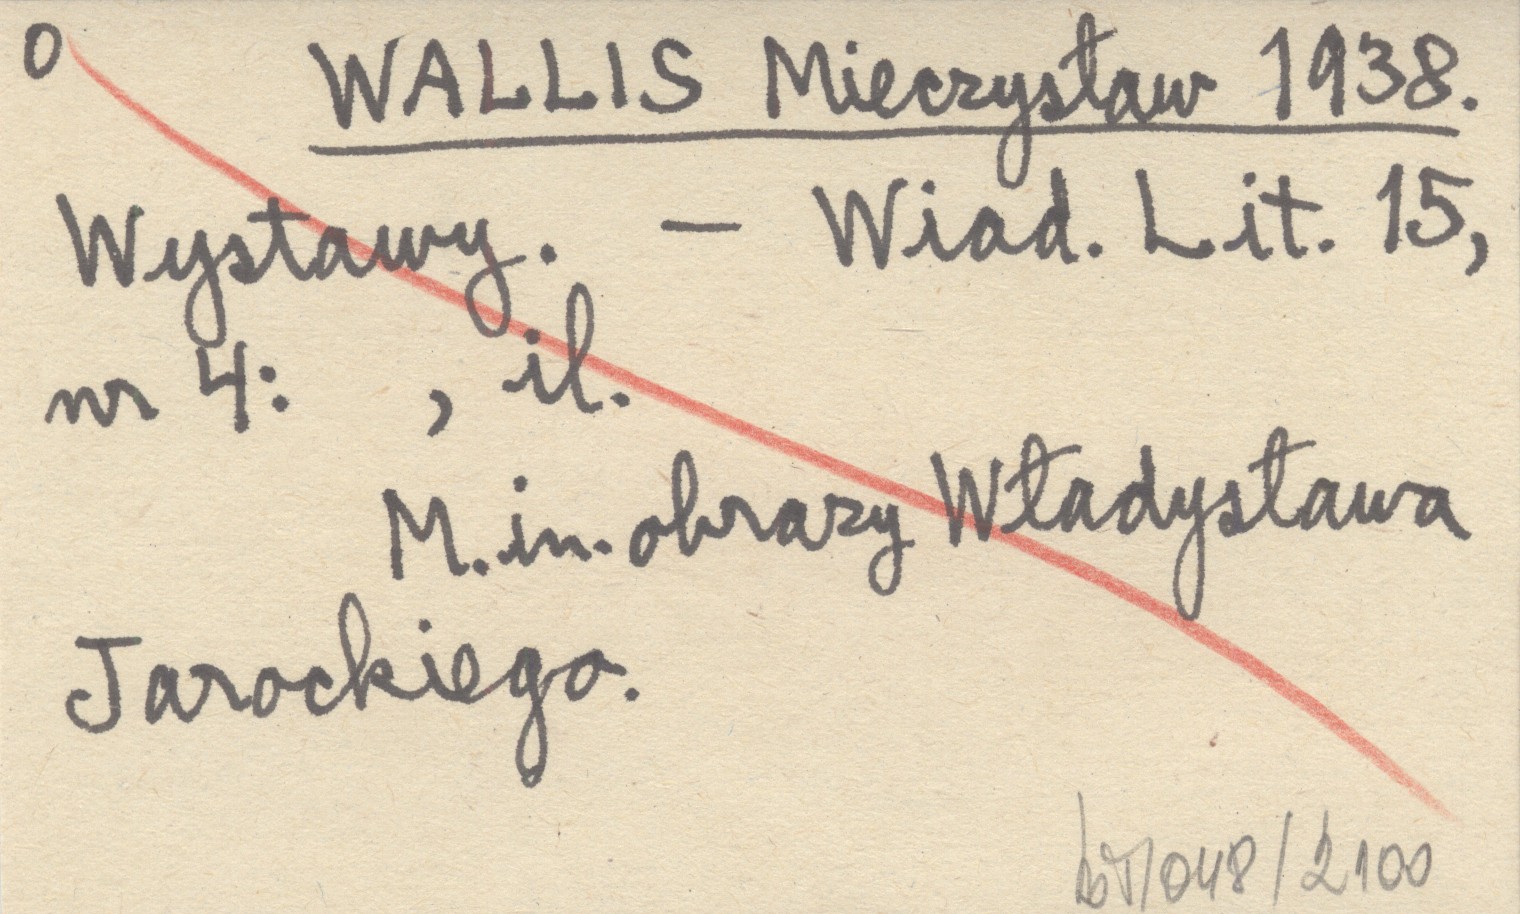 O WALLIS Mieczysław 1938.
Wystawy. — Wiad. Lit. 15,
nr 4: , il.
M.in. obrazy Władysława
Jarockiego.
/048/2100